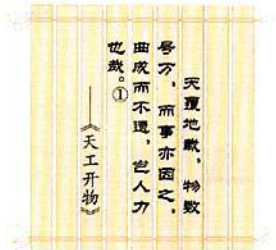 天覆地载，物数
号万，而事亦因之，
曲成而不遗，岂人力
也哉。①
——《天工开物》